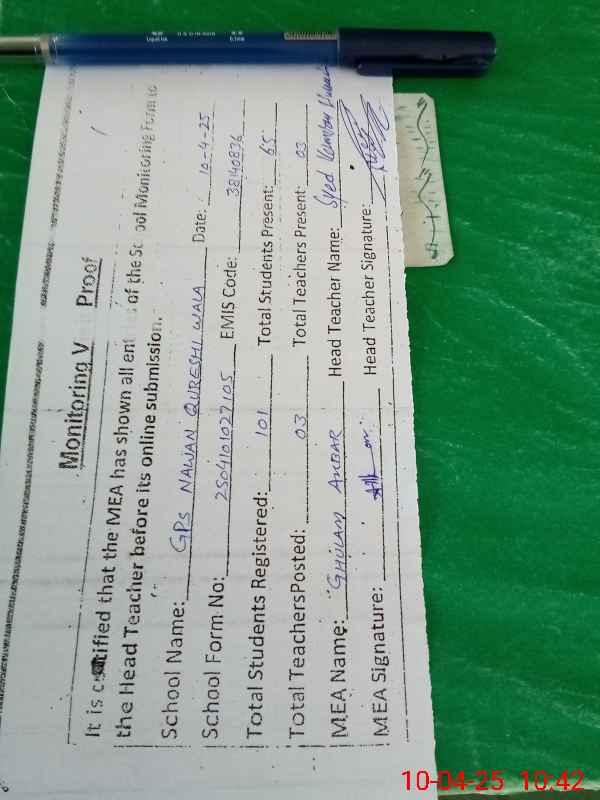 Monitoring V Proof
It is certified that the MEA has shown all ent of the School Monitoring Form to
the Head Teacher before its online submission.
School Name: GPS NAWAN QURESHI WALA Date: 10-4-25
School Form No: 2504101027105 EMIS Code: 38140836
Total Students Registered: 101 Total Students Present: 65
Total TeachersPosted: 03 Total Teachers Present: 03
MEA Name: GHULAM AKBAR Head Teacher Name: Syed
MEA Signature: Head Teacher Signature:
10-04-25 10:42